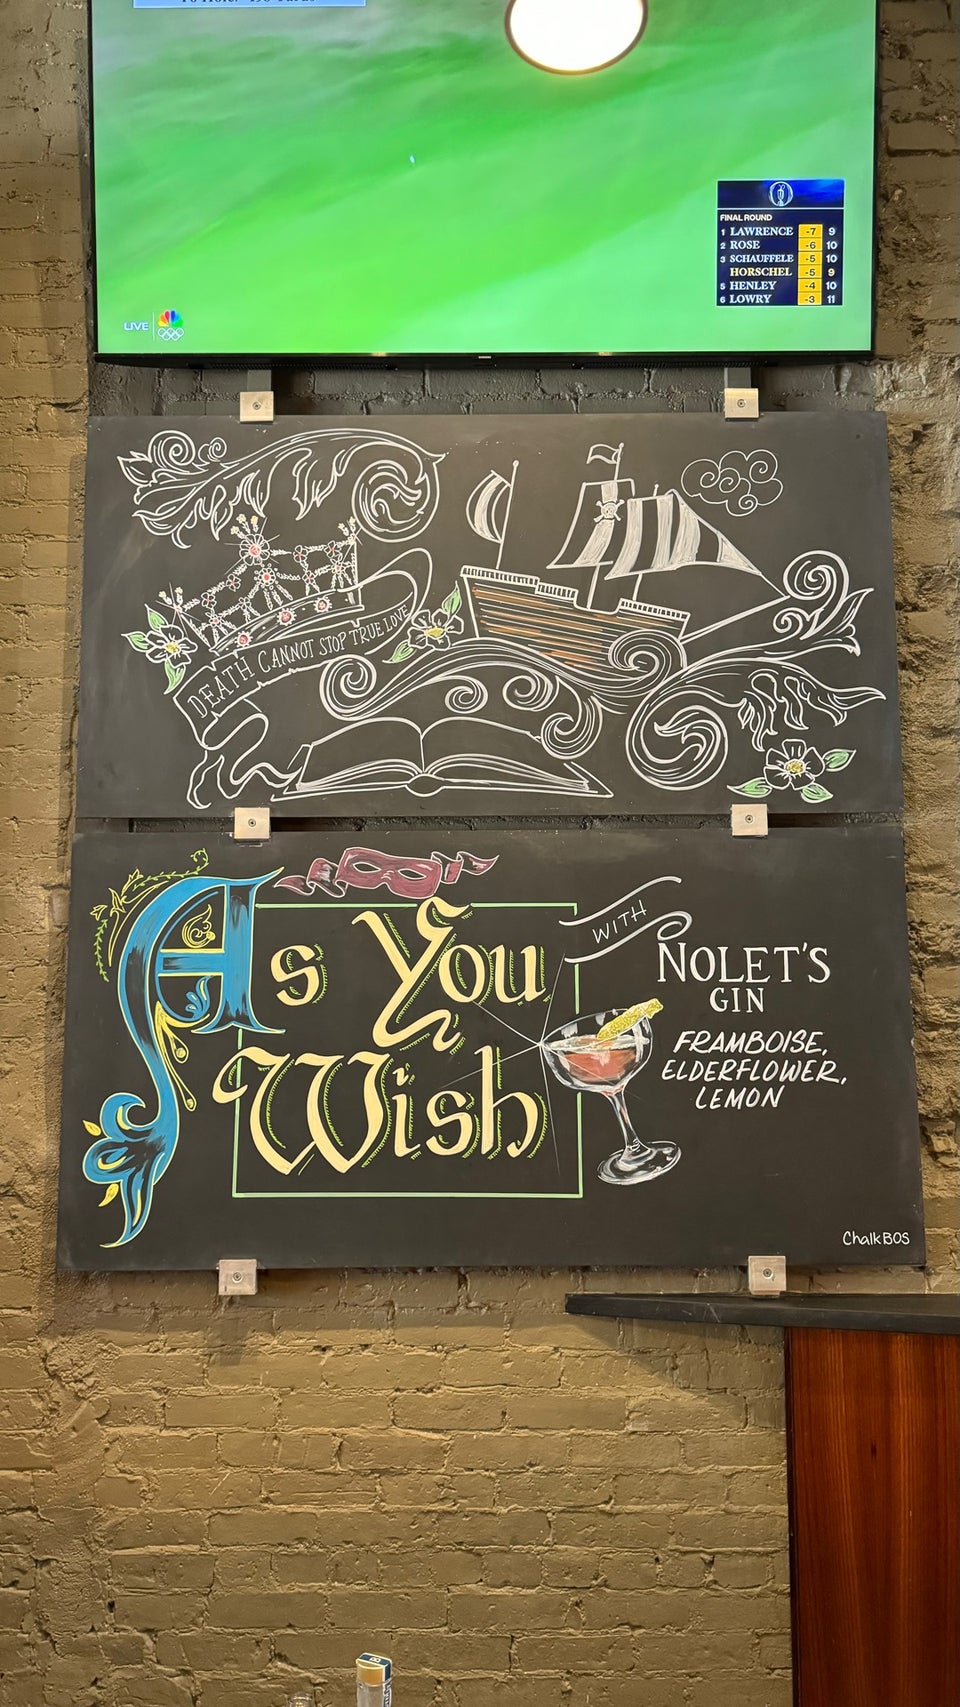 To Hole: 490 Yards
FINAL ROUND
1 LAWRENCE -7 9
2 ROSE -6 10
3 SCHAUFFELE -5 10
HORSCHEL -5 9
5 HENLEY -4 10
6 LOWRY -3 11
LIVE
DEATH CANNOT STOP TRUE LOVE
As You
Wish
WITH
NOLET'S
GIN
FRAMBOISE,
ELDERFLOWER,
LEMON
ChalkBOS